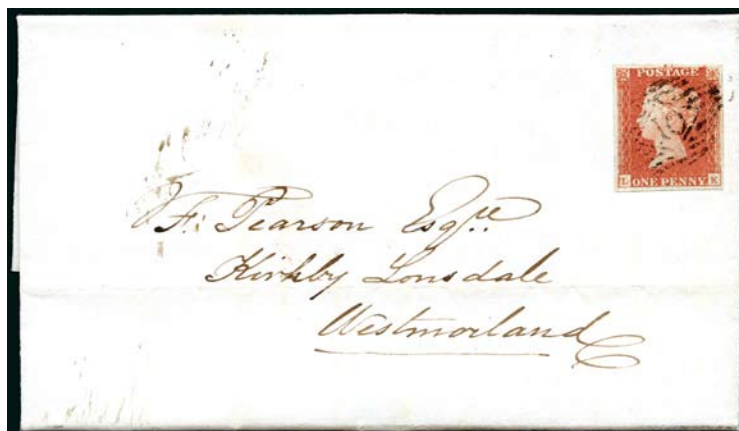 POSTAGE
L ONE PENNY K
F: Pearson Esqre
Kirkby Lonsdale
Westmorland